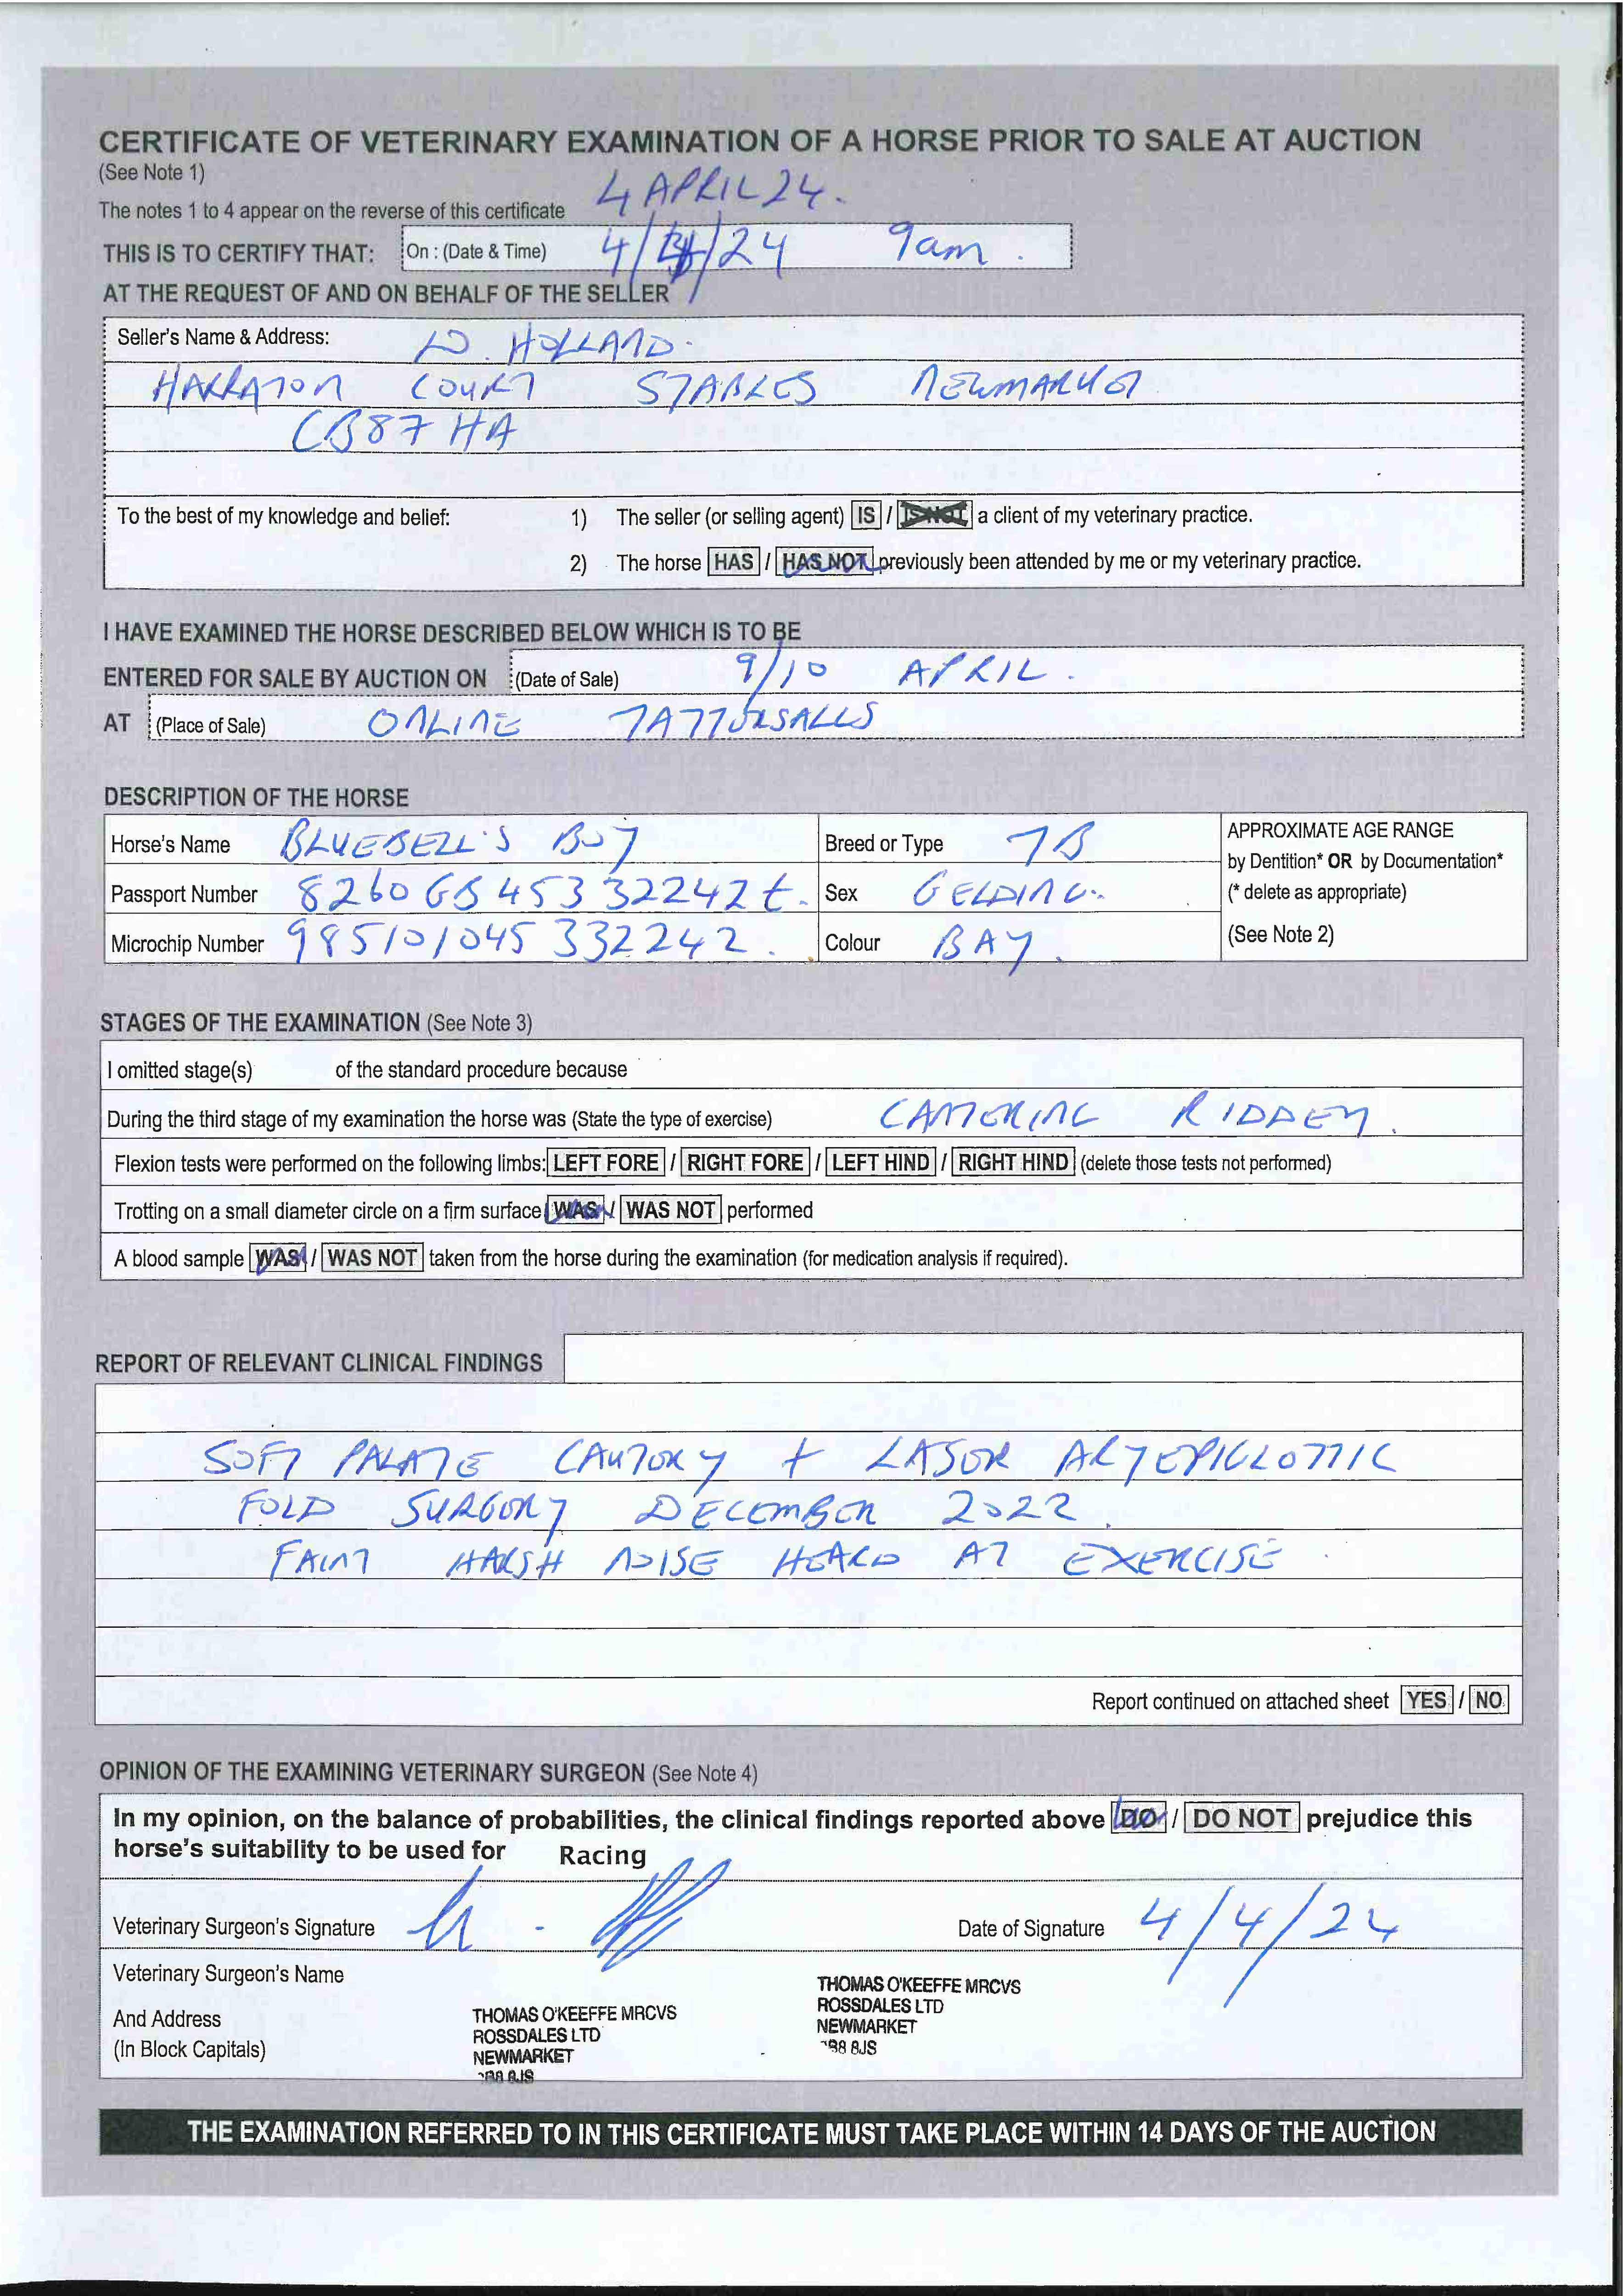 CERTIFICATE OF VETERINARY EXAMINATION OF A HORSE PRIOR TO SALE AT AUCTION
(See Note 1)
4 APRIL 24.
The notes 1 to 4 appear on the reverse of this certificate
THIS IS TO CERTIFY THAT: On : (Date & Time) 4/ /24 9am.
AT THE REQUEST OF AND ON BEHALF OF THE SELLER
Seller's Name & Address: HOLLAND.
HARRATON COURT STABLES NEWMARKET
CB87HA
To the best of my knowledge and belief: 1) The seller (or selling agent) IS / IS NOT a client of my veterinary practice.
2) The horse HAS / HAS NOT previously been attended by me or my veterinary practice.
I HAVE EXAMINED THE HORSE DESCRIBED BELOW WHICH IS TO BE
ENTERED FOR SALE BY AUCTION ON (Date of Sale) 9/10 APRIL.
AT (Place of Sale) ONLINE TATTERSALLS
DESCRIPTION OF THE HORSE
Horse's Name BLUEBELL'S BOY Breed or Type TB APPROXIMATE AGE RANGE
by Dentition* OR by Documentation*
Passport Number 8260 GB 453 32242 t. Sex GELDING. (* delete as appropriate)
Microchip Number 985101045 332242. Colour BAY. (See Note 2)
STAGES OF THE EXAMINATION (See Note 3)
I omitted stage(s) of the standard procedure because
During the third stage of my examination the horse was (State the type of exercise) CANTERING RIDDEN.
Flexion tests were performed on the following limbs: LEFT FORE / RIGHT FORE / LEFT HIND / RIGHT HIND (delete those tests not performed)
Trotting on a small diameter circle on a firm surface WAS / WAS NOT performed
A blood sample WAS / WAS NOT taken from the horse during the examination (for medication analysis if required).
REPORT OF RELEVANT CLINICAL FINDINGS
SOFT PALATE CAUTERY + LASER ARYEPIGLOTTIC
FOLD SURGERY DECEMBER 2022.
FAINT HARSH NOISE HEARD AT EXERCISE.
Report continued on attached sheet YES / NO
OPINION OF THE EXAMINING VETERINARY SURGEON (See Note 4)
In my opinion, on the balance of probabilities, the clinical findings reported above DO / DO NOT prejudice this
horse's suitability to be used for Racing
Veterinary Surgeon's Signature Date of Signature 4/4/24
Veterinary Surgeon's Name
And Address
(In Block Capitals)
THOMAS O'KEEFFE MRCVS
ROSSDALES LTD
NEWMARKET
THOMAS O'KEEFFE MRCVS
ROSSDALES LTD
NEWMARKET
8JS
THE EXAMINATION REFERRED TO IN THIS CERTIFICATE MUST TAKE PLACE WITHIN 14 DAYS OF THE AUCTION